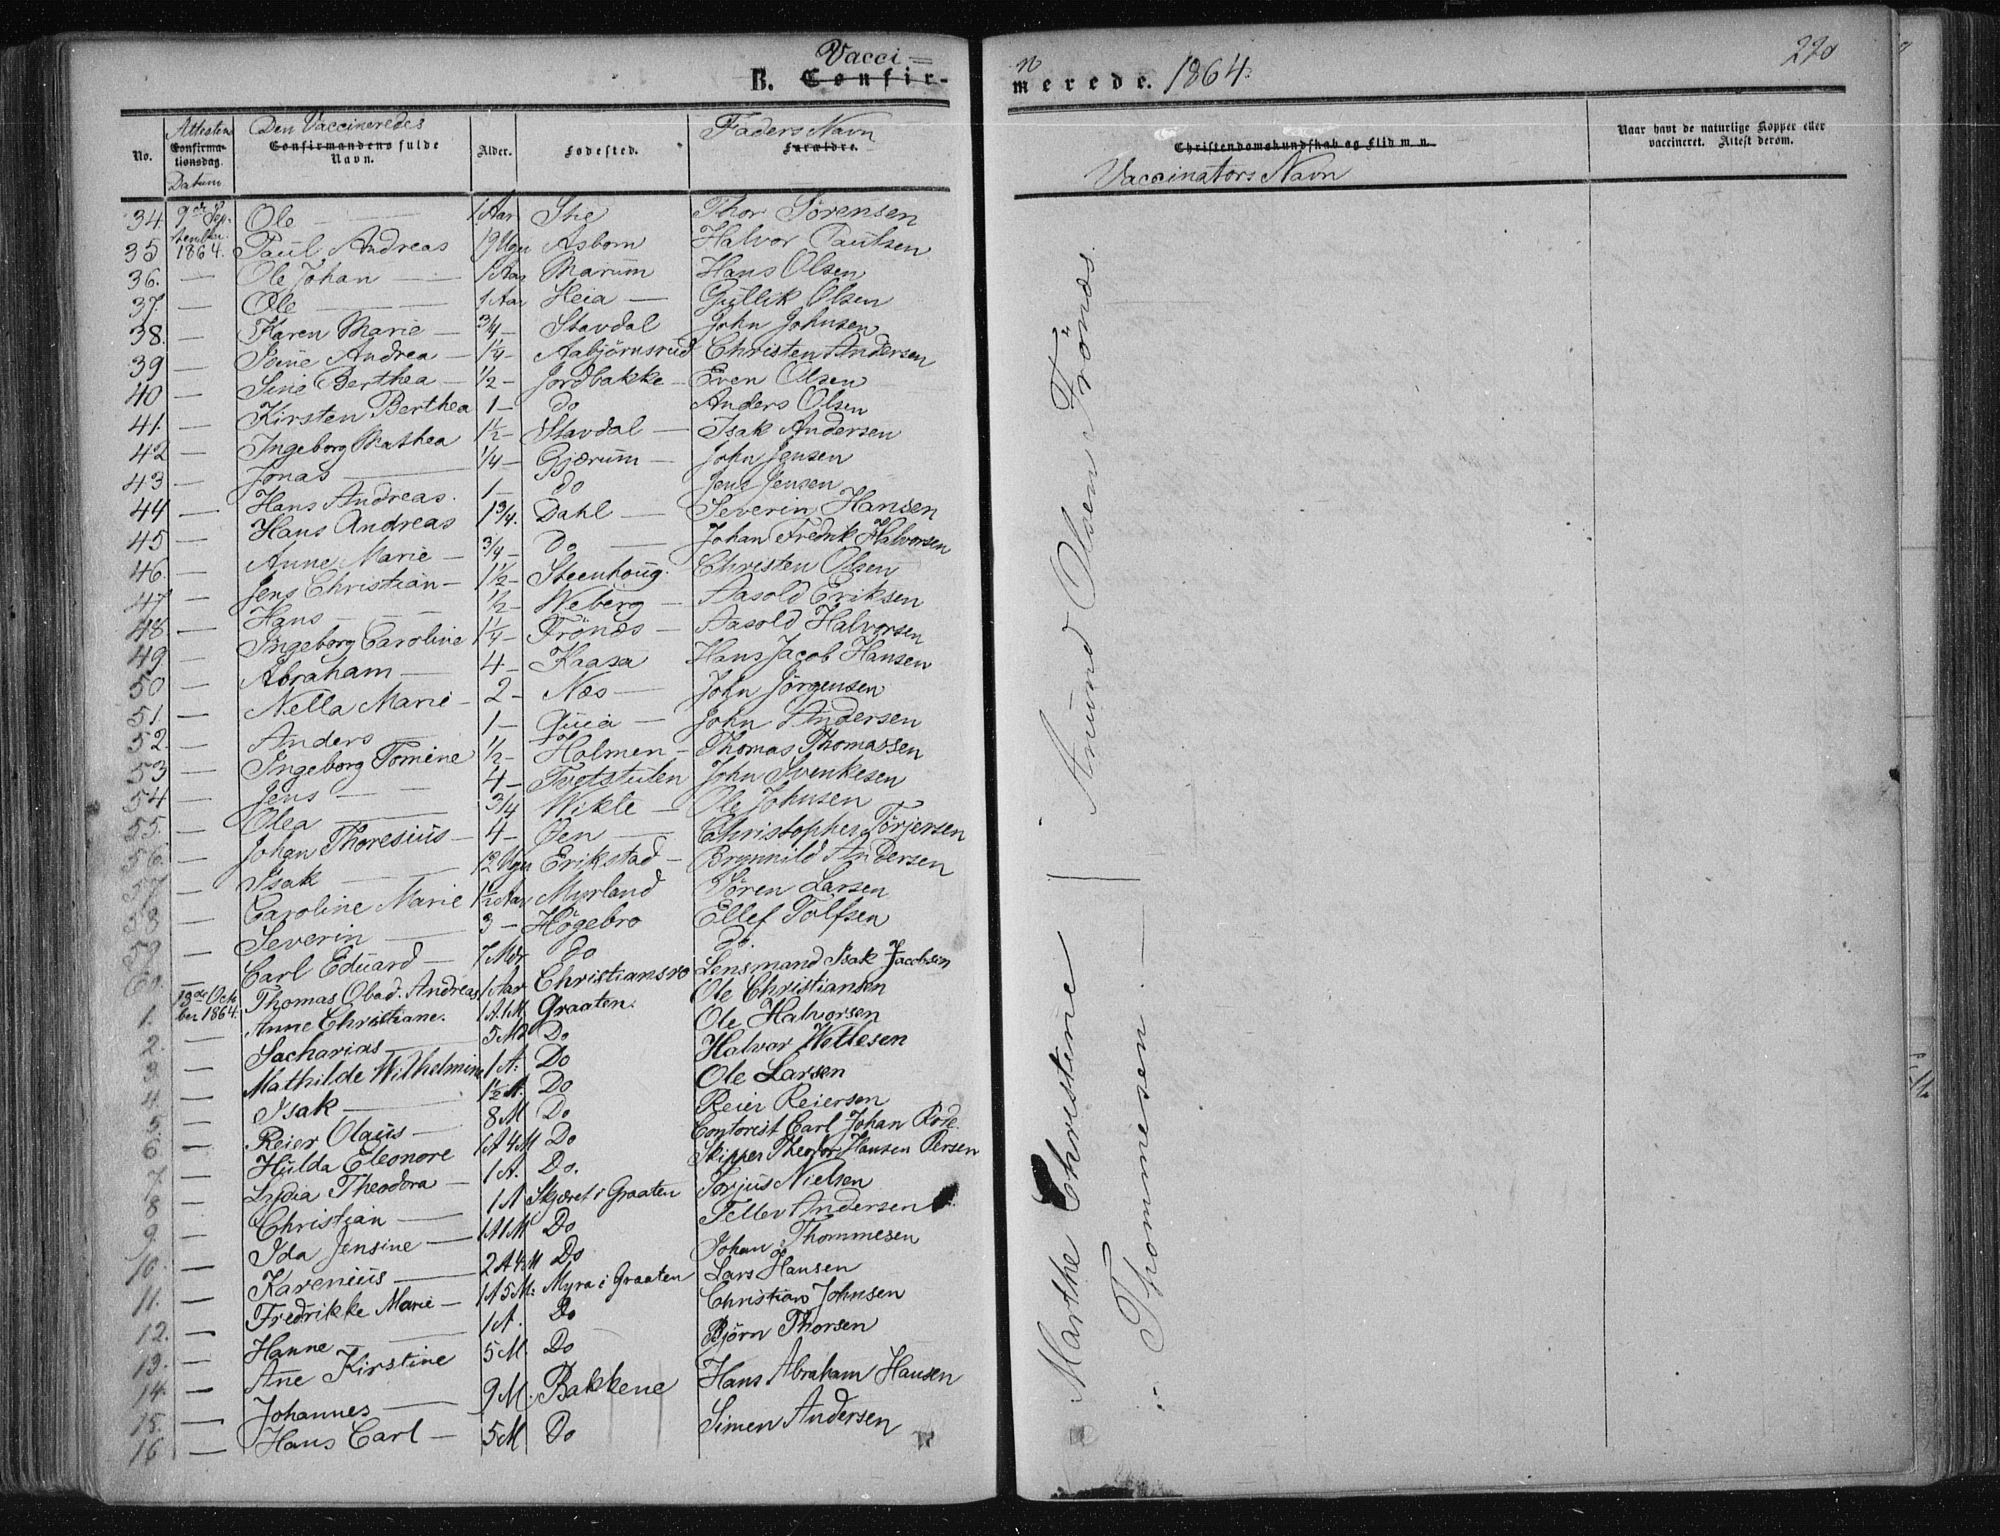 Vacci=
B. Confir-
n
merede. 1864.
220
No.
Attesten
Confirmationsdag.
Datum
Den Vaccineredes
Confirmandens fulde Navn.
Alder.
Fødested.
Faders Navn
Forældre.
Christendomskundskab og Flid m. n.
Vaccinators Navn
Naar havt de naturlige Kopper eller vaccineret. Attest derom.
34. 9de Sep- Ole — 1 Aar Stie Thor Sörensen
35 tember 1864. Paul Andreas 19 Uger Asborn Halvor Paulsen
36. — Ole Johan — 1 Aar Marum Hans Olsen
37. — Ole — 1 Aar Heia — Gullik Olsen
38. — Karen Marie — 3/4 — Stavdal John Johnsen
39 — Andrea — 1 1/4 — Aabjörnsrud Christen Andersen
40 — Sine Berthea — 1/2 — Jordbakke — Even Olsen
41. — Kirsten Berthea 1 — do Anders Olsen
42 — Ingeborg Mathea 1 1/2 — Stavdal — Isak Andersen
43 — Jonas — 1/4 — Gjærum — John Jensen
44 — Hans Andreas. 1 — do Jens Jensen
45 — Hans Andreas 1 3/4. Dahl — Severin Hansen
46. — Anne Marie — 3/4 — Do — Johan Fredrik Halvorsen
47 — Jens Christian — 1 1/2 — Steenhoug. Christen Olsen
48. — Hans — 1/2 — Weberg — Aasold Eriksen
49 — Ingeborg Caroline 1 1/4 — Frönæs — Aasold Halvorsen
50 — Abraham — 4 — Kaasa Hans Jacob Hansen
51. — Nella Marie — 2 — Næs — John Jörgensen
52. — Anders — 1 — John Andersen
53 — Ingeborg Tomine 1/2 — Holmen — Thomas Thomassen
54 — Jens — 4 — Tvetstulen John Svenkesen
55. — Olea — 3/4 Wikte — Ole Johnsen
56. — Johan Thoresius — 4 — Öen — Christopher Törjersen
57. — Isak — 12 Uger Erikstad — Brynnild Andersen
58 — Caroline Marie 1 1/2 Aar Myrland Sören Larsen
59 — Severin — 3 — Högebro Ellef Tolfsen
60. — Carl Eduard — 7 Mdr. do Do.
1. 13de Octber 1864. Thomas Obad. Andreas 1 Aar Christiansro Lensmand Isak Jacobsen
2. — Anne Christiane. 1 A. 1 M. Graaten. Ole Christiansen
3. — Sacharias — 5 Md Do Ole Halvorsen
4. — Mathilde Wilhelmine 1 A. Do Halvor Wettesen
5. — Isak — 1 1/2 A. Do Ole Larsen
6. — Reier Olaus — 8 M Do Reier Reiersen
7 — Hulda Eleonore 1 A 4 M Do Contorist Carl Johan Rode
8 — Lydia Theodora — 1 A. Do. Skipper Theodor Hansen Persen
9. — Christian — 1 A Skjæret i Graaten Torjus Nielsen
10. — Ida Jensine — 1 A 1 M Do Tellev Andersen
11. — Karenius — 2 A 4 M Do Johan Thommesen
12. — Fredrikke Marie — 1 A 5 M. Myra i Graaten Lars Hansen
13. — Hanne — 1 A. Do Christian Johnsen
14. — Ane Kirstine 5 M. Do Björn Thorsen
15. — Johannes — 9 M. Bakkene Hans Abraham Hansen
16 — Hans Carl — 5 M Do Simen Andersen
Anund Olsen Frönæs.
Marthe Christine
Thommesen. —